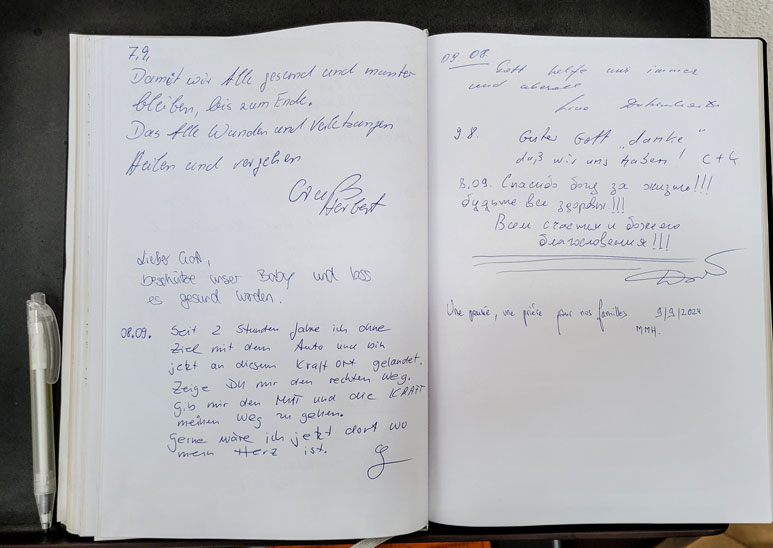 7.9.
Damit wir Alle gesund und munter
bleiben, bis zum Ende.
Das Alle Wunden und Verletzungen
Heilen und vergehen
Herbert
Lieber Gott,
beschütze unser Baby und lass
es gesund werden.
08.09. Seit 2 Stunden fahre ich ohne
Ziel mit dem Auto und bin
jetzt an diesem Kraft ORT gelandet.
Zeige DU mir den rechten Weg.
Gib mir den Mut und die KRAFT
meinen Weg zu gehen.
Gerne wäre ich jetzt dort wo
mein Herz ist.
09 08. Gott helfe uns immer
und überall
9.8. Guter Gott „danke"
daß wir uns haben!
8.09. Спасибо богу за жизнь!!!
будьте все здоровы!!!
Всем счастья и божьего
благословения!!!
Une pensée, une prière pour nos familles 9/9/2024
MMH.